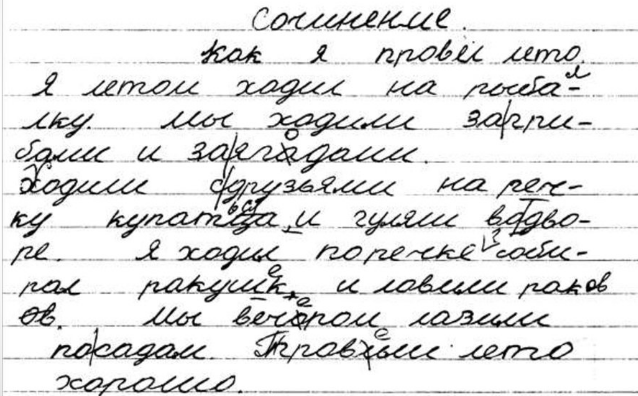 Сочинение.
Как я провёл лето.
Я летом ходил на рыба-
лку. Мы ходили загри-
бами и заягадами.
Ходили сдрузьями на реч-
ку купатца и гуляли водво-
ре. Я ходил поречке соби-
рал ракушк и ловили раков
ов. Мы вечором лазили
посадам. Провили лето
хорошо.